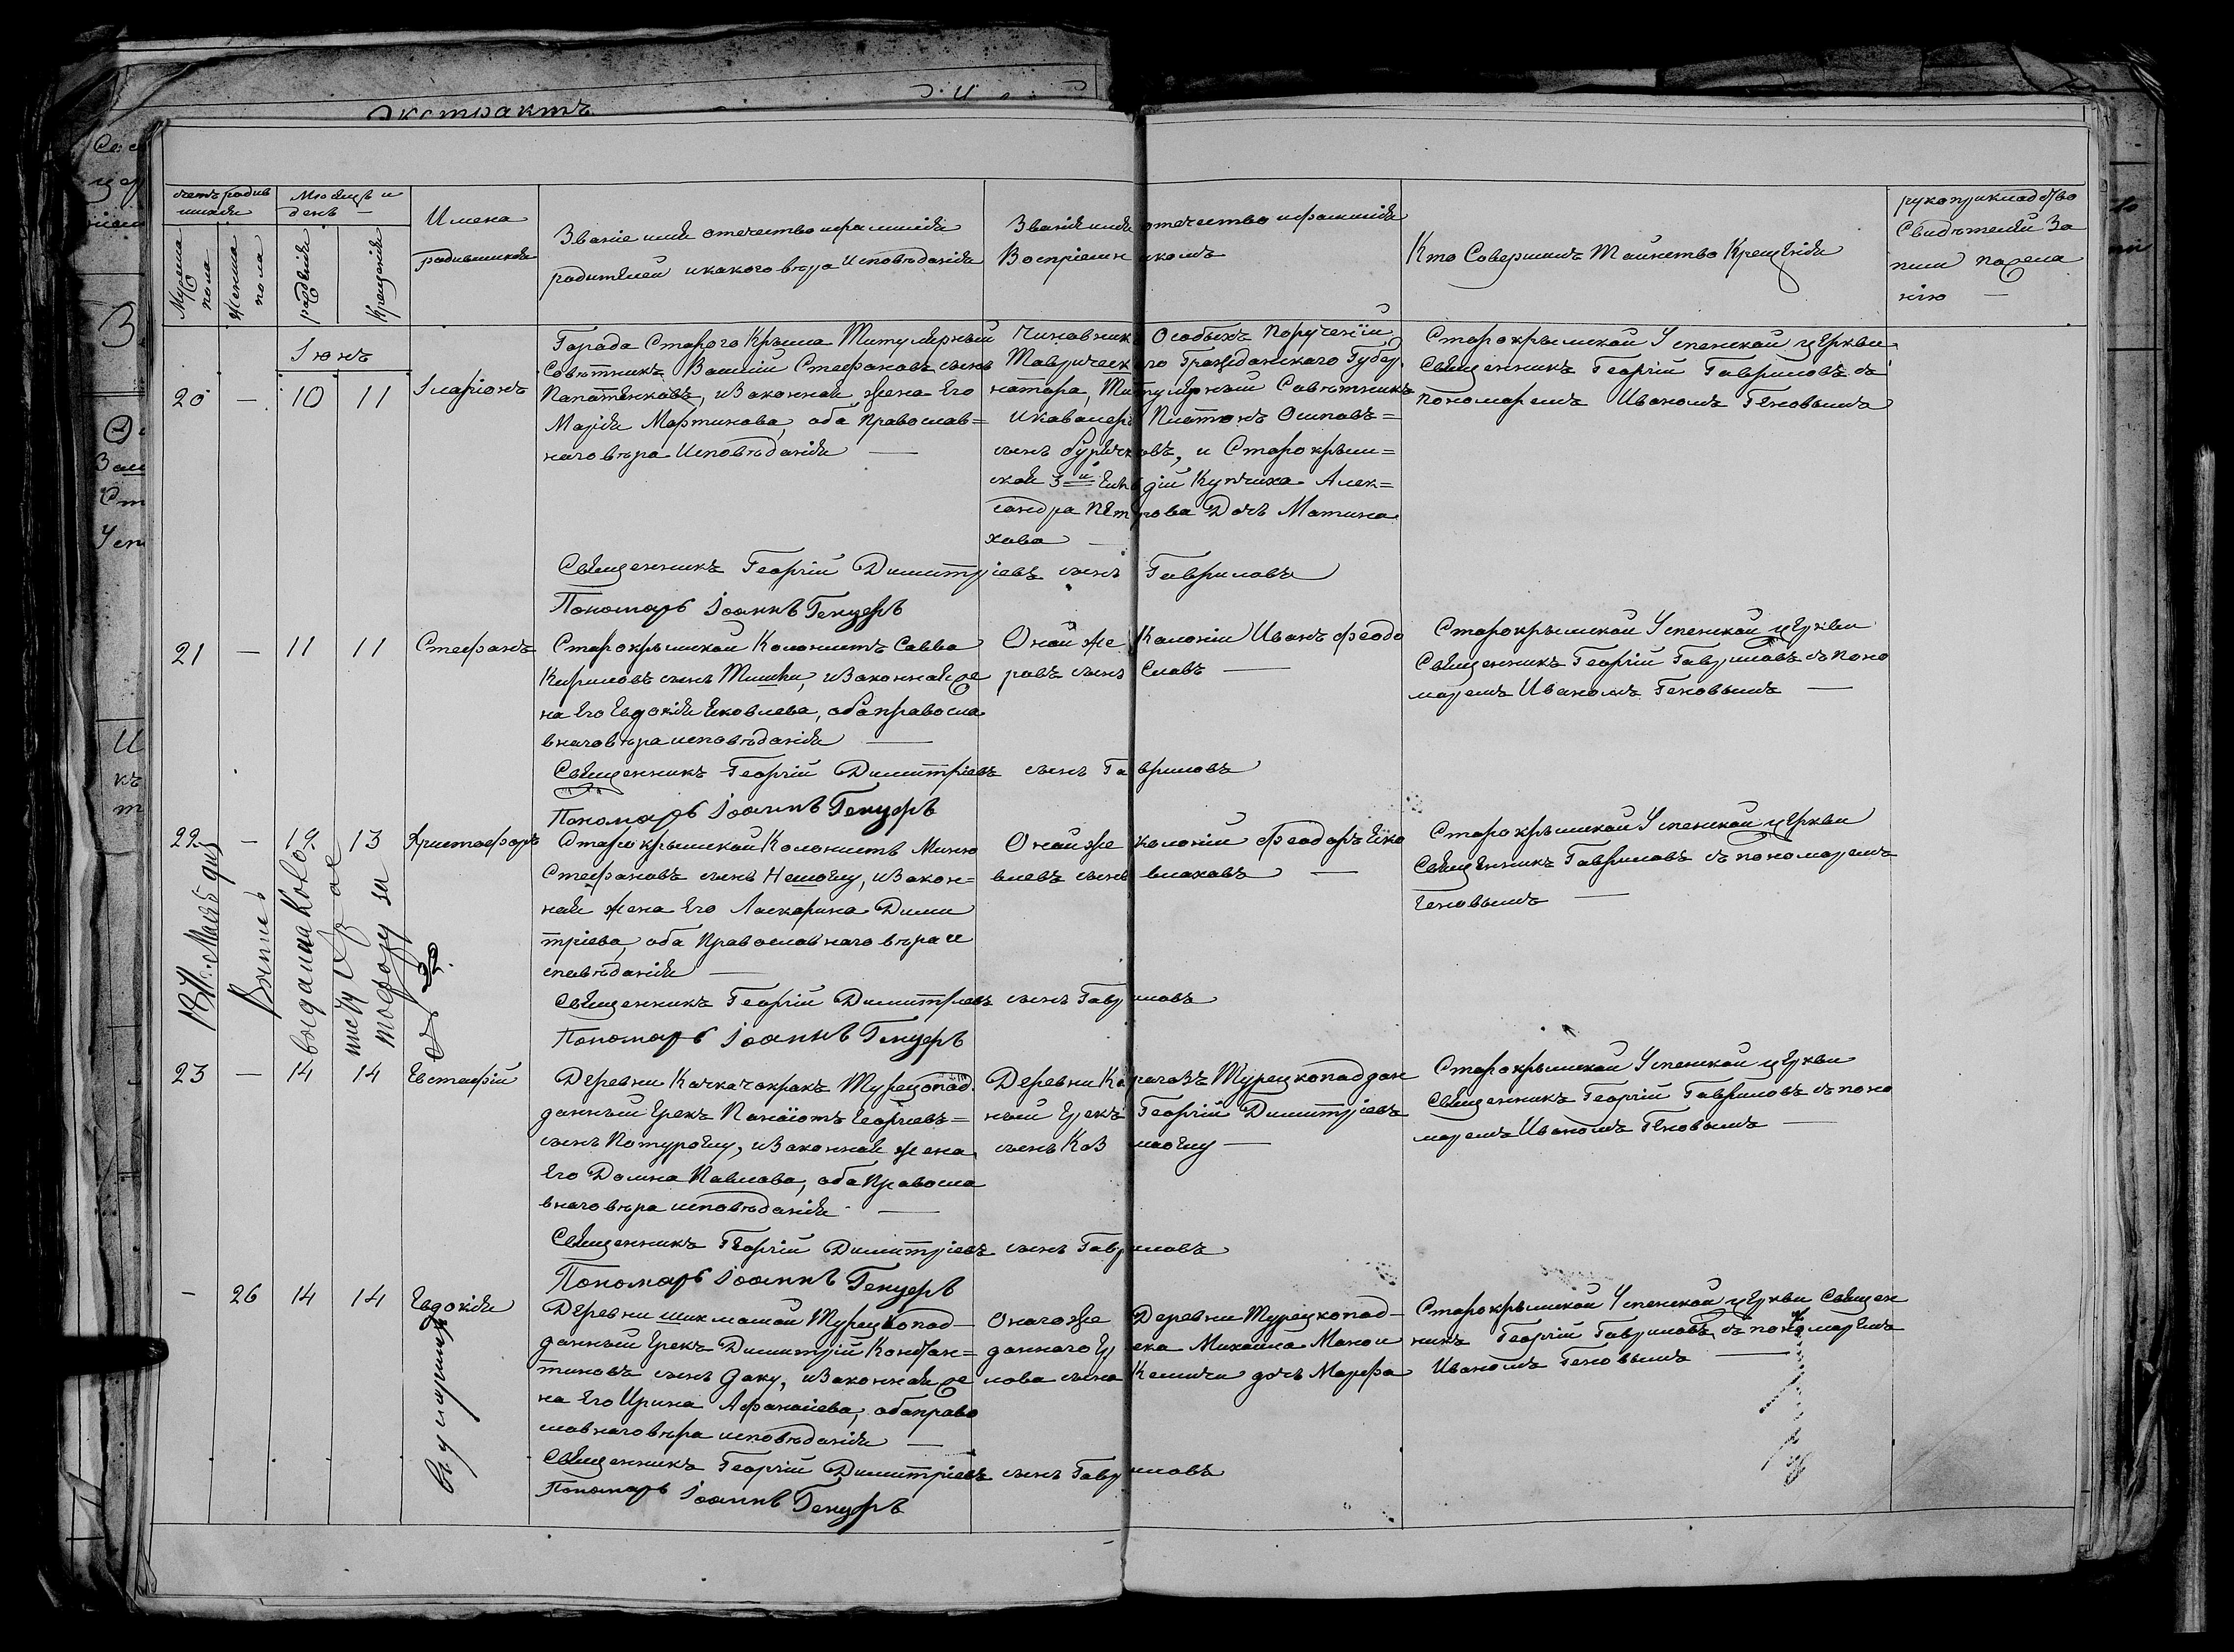 Экстрактъ
Счетъ родив
шихся
Мужеска
пола
Женска
пола
Мѣсяцъ и
день —
рожденія
Крещенія
Имена
родившихся
Званіе имя отечество и фамилія
родителей и какого вѣра Исповѣданія
Званіе имя отечество и фамилія
Воспріемниковъ
Кто Совершалъ Таинство Крещенія
рукоприкладство
Свидѣтелей За
писи по жела
нію —
Іюнь
20 — 10 11 Іларіонъ
Города Старого Крыма Титулярный
Совѣтникъ Василій Стефановъ сынъ
Папатенковъ, и Законная жена Его
Марія Мартинова, оба Православ=
наго вѣра Исповѣданія —
Чиновникъ Особыхъ Порученій
Таврическаго Гражданскаго Губер
натора, Титулярный Совѣтникъ
и Кавалеръ Платонъ Осиповъ=
сынъ, и Старокрым=
ской 3й Гильдіи Купчиха Алек=
сандра Петрова Дочь Матина
хова —
Старокрымской Успенской церкви
Священникъ Георгій Гавриловъ съ
пономаремъ Иваномъ Геновымъ
Священникъ Георгій Димитріевъ сынъ Гавриловъ
Пономарь Іоаннъ Генуеръ
21 — 11 11 Стефанъ
Старокрымской Колонистъ Савва
Кириловъ сынъ Тишки, и Законная же
на Его Евдокія Яковлева, оба правосла
внаго вѣра исповѣданія —
Оной же Колоніи Иванъ Феодо
ровъ сынъ Славъ —
Старокрымской Успенской церкви
Священникъ Георгій Гавриловъ съ поно
маремъ Иваномъ Геновымъ —
Священникъ Георгій Димитріевъ сынъ Гавриловъ
Пономарь Іоаннъ Генуеръ
22 — 12 13 Христофоръ
Старокрымской Колонистъ Миню
Стефановъ сынъ Немогцу, и Закон=
ная жена Его Ласкарина Дими
тріева, оба Православнаго вѣра и
сповѣданія —
Оной же колоніи Феодоръ Яко
влевъ сынъ Влаховъ —
Старокрымской Успенской церкви
Священникъ Гавриловъ съ пономаремъ
Геновымъ —
Выпись
выдана
Священникъ Георгій Димитріевъ сынъ Гавриловъ
Пономарь Іоаннъ Генуеръ
23 — 14 14 Евстафій
Деревни Качкачокракъ Турецкопод
данный Грекъ Панаіотъ Георгіевъ=
сынъ Потуроглу, и Законная жена
Его Домна Павлова, оба Правосла
внаго вѣра исповѣданія —
Деревни Карагозъ Турецкоподдан
ный Грекъ Георгій Димитріевъ
сынъ Казмаоглу —
Старокрымской Успенской церкви
Священникъ Георгій Гавриловъ съ поно
маремъ Иваномъ Геновымъ —
Священникъ Георгій Димитріевъ сынъ Гавриловъ
Пономарь Іоаннъ Генуеръ
— 26 14 14 Евдокія
Деревни шихмамай Турецкопод
данный Грекъ Димитрій Констан=
тиновъ сынъ Даку, и Законная же
на Его Ирина Афанасіева, оба право
славнаго вѣра исповѣданія —
Оной же Деревни Турецкопод
даннаго Грека Михаила Манои
лова сына Кемичи дочь Марфа
Старокрымской Успенской церкви Священ
никъ Георгій Гавриловъ съ пономаремъ
Иваномъ Геновымъ —
Священникъ Георгій Димитріевъ сынъ Гавриловъ
Пономарь Іоаннъ Генуеръ